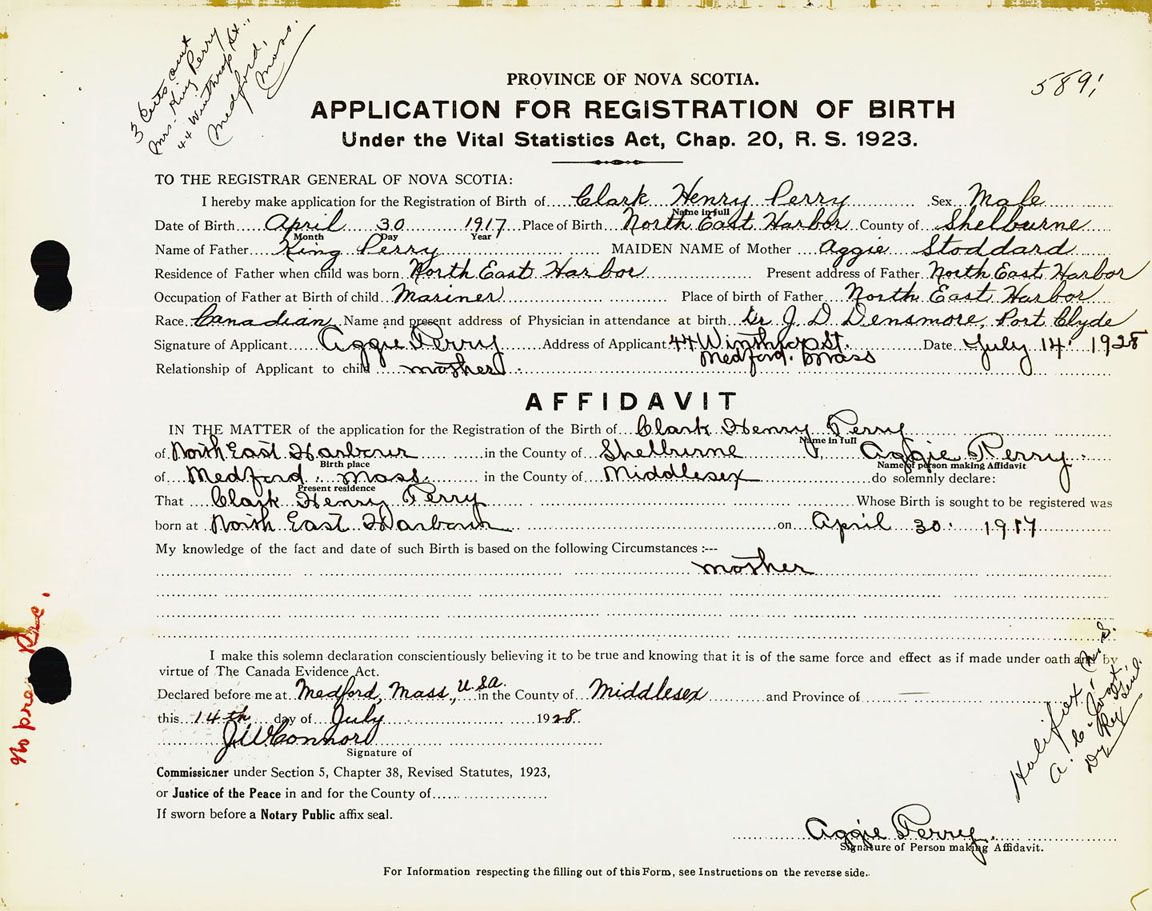 3 Certs out
Mrs. King Perry
44 Winthrop St.,
Medford,
Mass.
PROVINCE OF NOVA SCOTIA.
APPLICATION FOR REGISTRATION OF BIRTH
Under the Vital Statistics Act, Chap. 20, R. S. 1923.
TO THE REGISTRAR GENERAL OF NOVA SCOTIA:
I hereby make application for the Registration of Birth of Clark Henry Perry Sex Male
Name in full
Date of Birth April 30 1917 Place of Birth North East Harbor County of Shelburne
Month Day Year
Name of Father King Perry MAIDEN NAME of Mother Aggie Stoddard
Residence of Father when child was born North East Harbor Present address of Father North East Harbor
Occupation of Father at Birth of child Mariner Place of birth of Father North East Harbor
Race Canadian Name and present address of Physician in attendance at birth Dr J. D Densmore, Port Clyde
Signature of Applicant Aggie Perry Address of Applicant 44 Winthrop St. Medford. Mass Date July 14 1928
Relationship of Applicant to child mother
AFFIDAVIT
IN THE MATTER of the application for the Registration of the Birth of Clark Henry Perry
Name in full
of North East Harbour in the County of Shelburne Aggie Perry.
Birth place Name of person making Affidavit
of Medford. Mass. in the County of Middlesex do solemnly declare:
Present residence
That Clark Henry Perry Whose Birth is sought to be registered was
born at North East Harbour on April 30. 1917
My knowledge of the fact and date of such Birth is based on the following Circumstances :---
mother
No pre Rec.
I make this solemn declaration conscientiously believing it to be true and knowing that it is of the same force and effect as if made under oath and by
virtue of The Canada Evidence Act.
Declared before me at Medford, Mass, U.S.A. in the County of Middlesex and Province of
this 14th day of July 1928.
J.W. Connors
Signature of
Commissioner under Section 5, Chapter 38, Revised Statutes, 1923,
or Justice of the Peace in and for the County of
If sworn before a Notary Public affix seal.
Halifax N.S.
Aggie Perry.
Signature of Person making Affidavit.
For Information respecting the filling out of this Form, see Instructions on the reverse side.